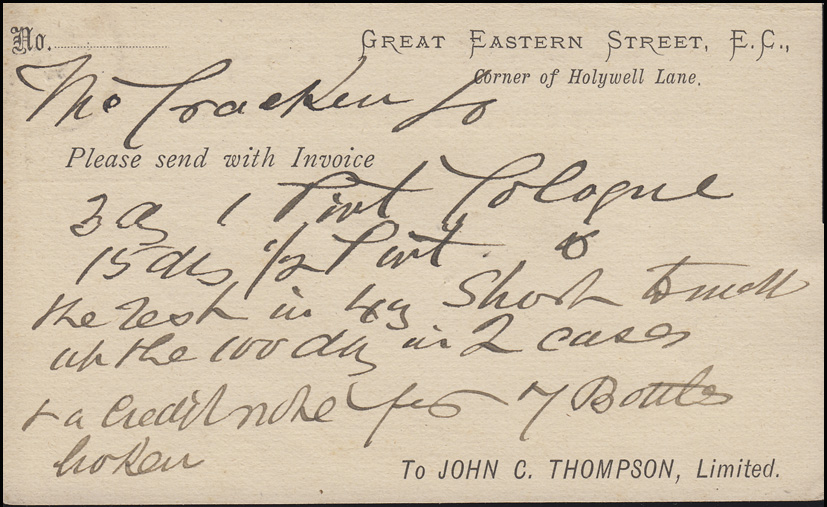 No.
GREAT EASTERN STREET, E.C.,
Corner of Holywell Lane.
McCracken
Please send with Invoice
3 1 Pint Cologne
15 1/2 Pint
the rest in Short to make
up the 100 in 2 cases
& a Credit note for 7 Bottles
broken
To JOHN C. THOMPSON, Limited.